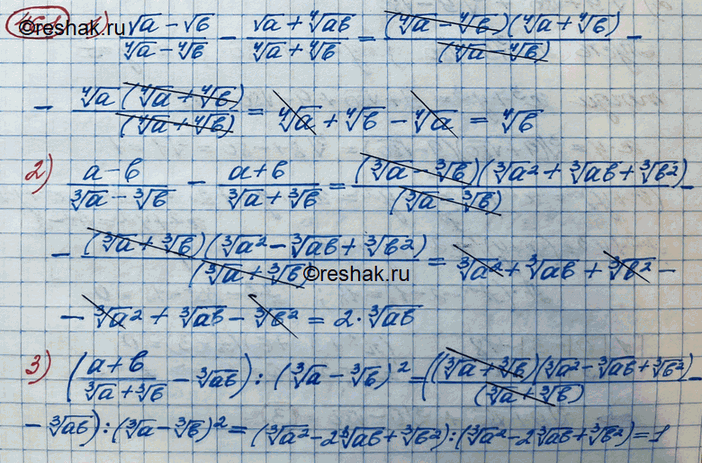 ©reshak.ru
1) (√a − √b)/(⁴√a − ⁴√b) − (√a + ⁴√ab)/(⁴√a + ⁴√b) = ((⁴√a − ⁴√b)(⁴√a + ⁴√b))/(⁴√a − ⁴√b) −
− (⁴√a (⁴√a + ⁴√b))/(⁴√a + ⁴√b) = ⁴√a + ⁴√b − ⁴√a = ⁴√b
2) (a − b)/(³√a − ³√b) − (a + b)/(³√a + ³√b) = ((³√a − ³√b)(³√a² + ³√ab + ³√b²))/(³√a − ³√b) −
− ((³√a + ³√b)(³√a² − ³√ab + ³√b²))/(³√a + ³√b) = ³√a² + ³√ab + ³√b² −
©reshak.ru
− ³√a² + ³√ab − ³√b² = 2·³√ab
3) ((a + b)/(³√a + ³√b) − ³√ab) : (³√a − ³√b)² = (((³√a + ³√b)(³√a² − ³√ab + ³√b²))/(³√a + ³√b) −
− ³√ab) : (³√a − ³√b)² = (³√a² − 2³√ab + ³√b²) : (³√a² − 2³√ab + ³√b²) = 1
©reshak.ru